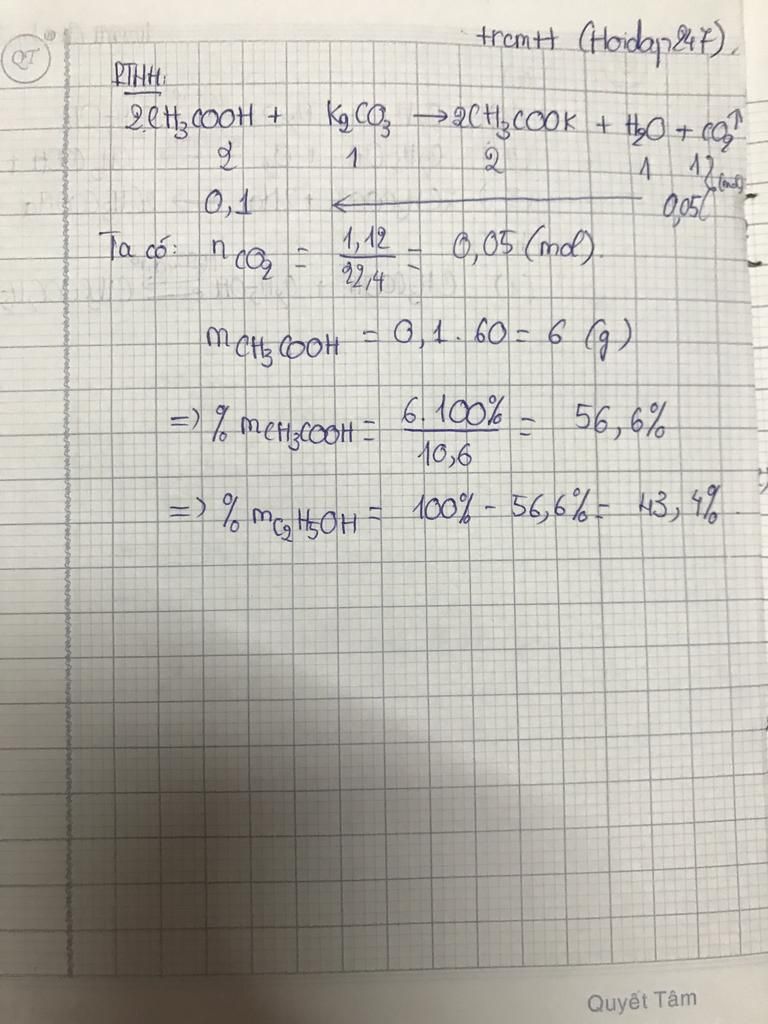 trcm++ (Hoidap247).
QT
PTHH:
2CH₃COOH + K₂CO₃ → 2CH₃COOK + H₂O + CO₂↑
2 1 2 1 1
(mol)
0,1 ← 0,05
Ta có: nCO₂ = 1,12/22,4 = 0,05 (mol).
mCH₃COOH = 0,1 . 60 = 6 (g)
=> % mCH₃COOH = 6.100%/10,6 = 56,6%
=> % mC₂H₅OH = 100% - 56,6% = 43,4%
Quyết Tâm